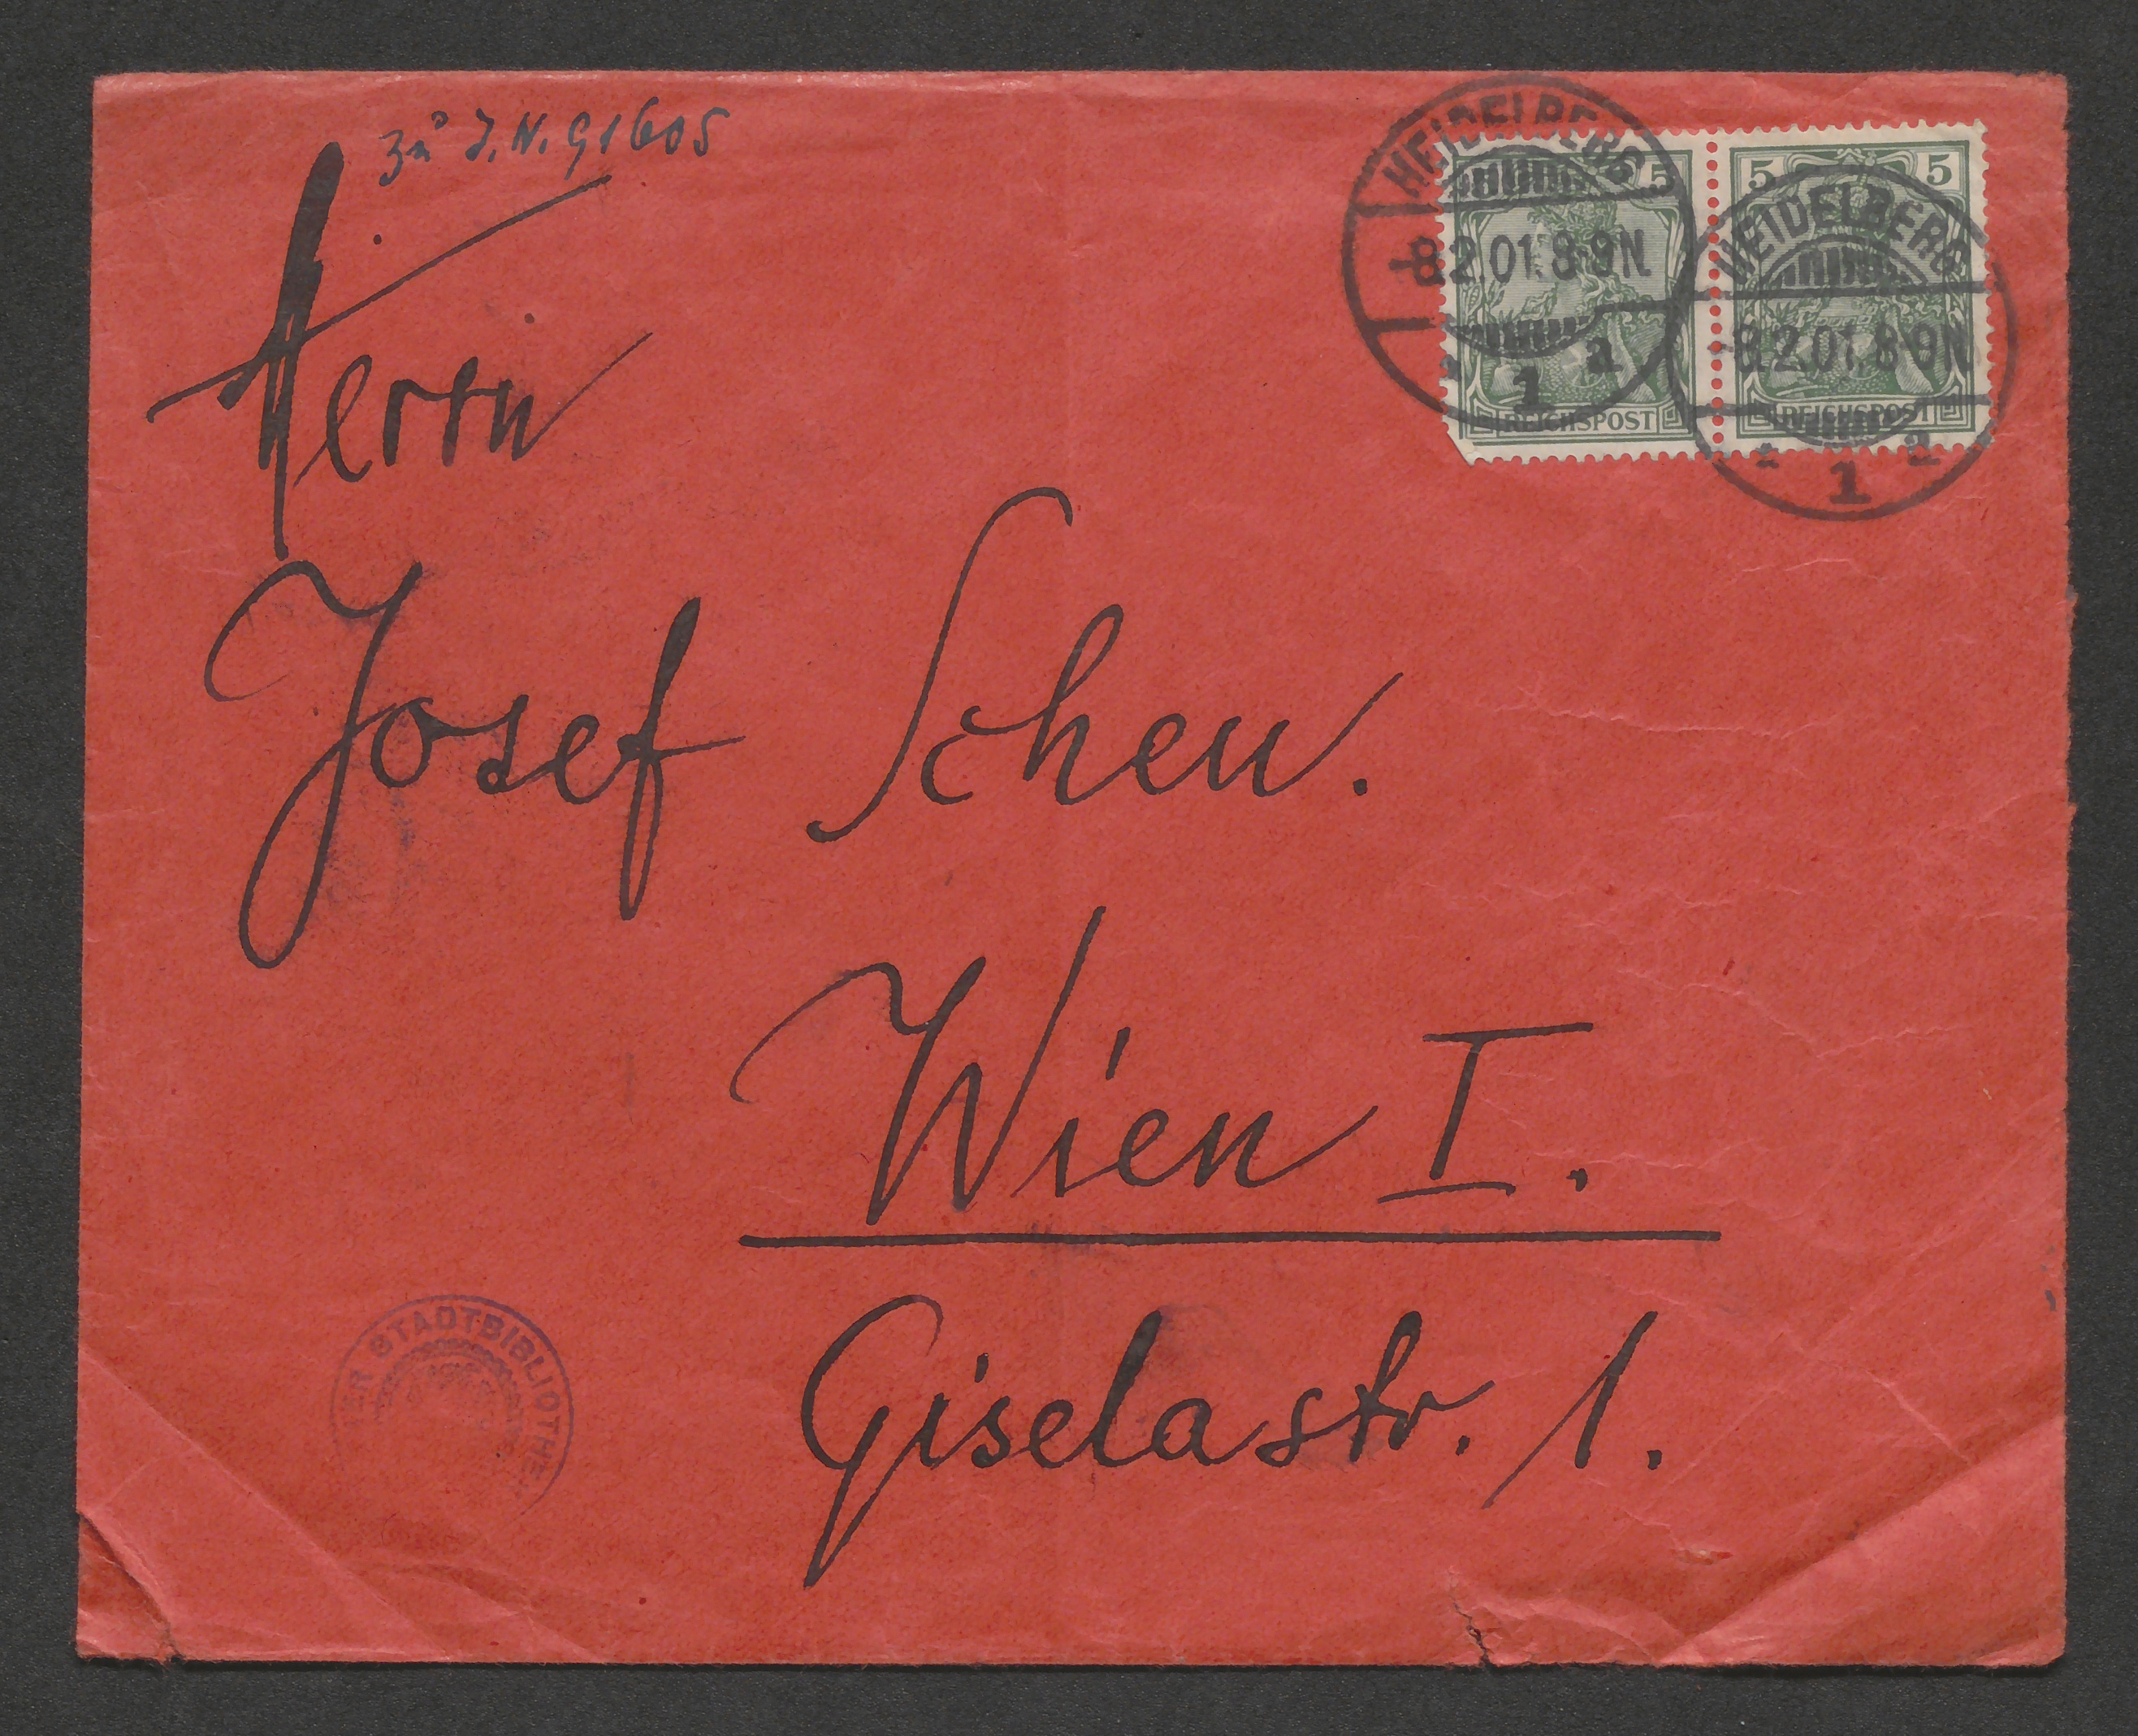 zu J.N. 91605
HEIDELBERG
-8.2.01.8-9N.
* 1 a
5
REICHSPOST
5 5
HEIDELBERG
-8.2.01.8-9N
* 1 a
REICHSPOST
Herrn
Josef Scheu.
Wien I.
Giselastr. 1.
STADTBIBLIOTHEK